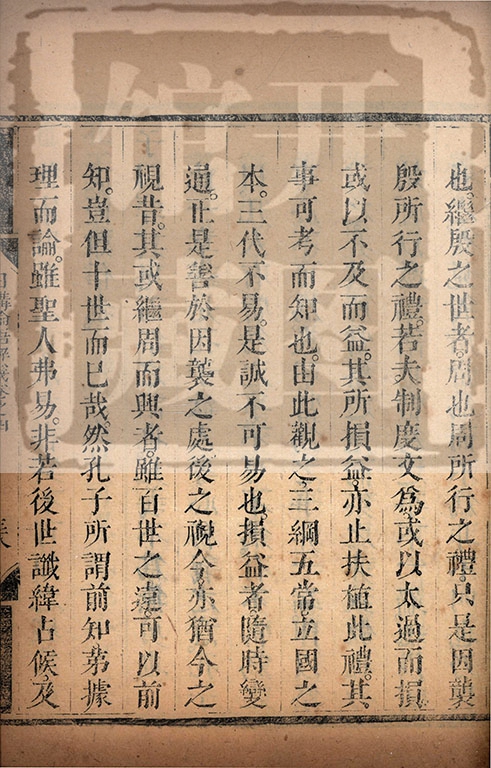 也。繼殷之世者。周也周所行之禮。只是因襲
殷所行之禮。若夫制度文為。或以太過而損
或以不及而益。其所損益亦止扶植此禮。其
事可考而知也。由此觀之。三綱五常。立國之
本。三代不易。是誠不可易也。損益者。隨時變
通。正是善於因襲之處後之視今亦猶今之
視昔。其或繼周而興者。雖百世之遠。可以前
知。豈但十世而已哉。然孔子所謂前知第據
理而論。雖聖人弗易。非若後世讖緯占候。災